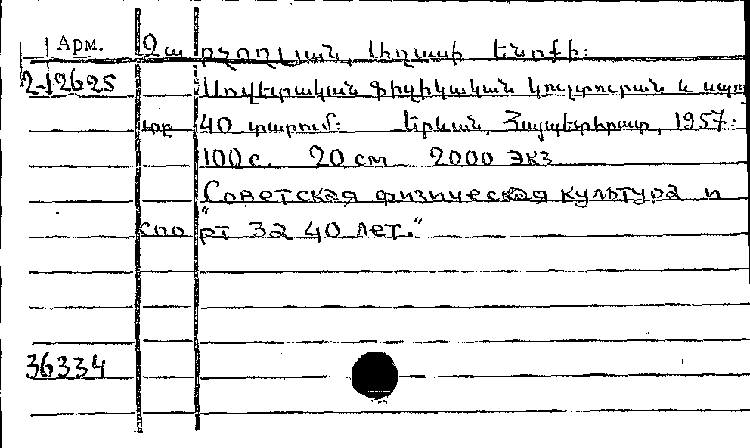 Арм. Չա րչողլյան, Աղասի Ենոքի:
2-12625 Սովետական ֆիզիկական կուլտուրան և սպո
րտը 40 տարում: Երևան, Հայպետհրատ, 1957:
100 с. 20 см 2000 экз
"Советская физическая культура и
спо рт за 40 лет."
36334